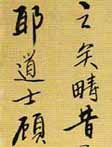 之矣疇昔
耶道士顧